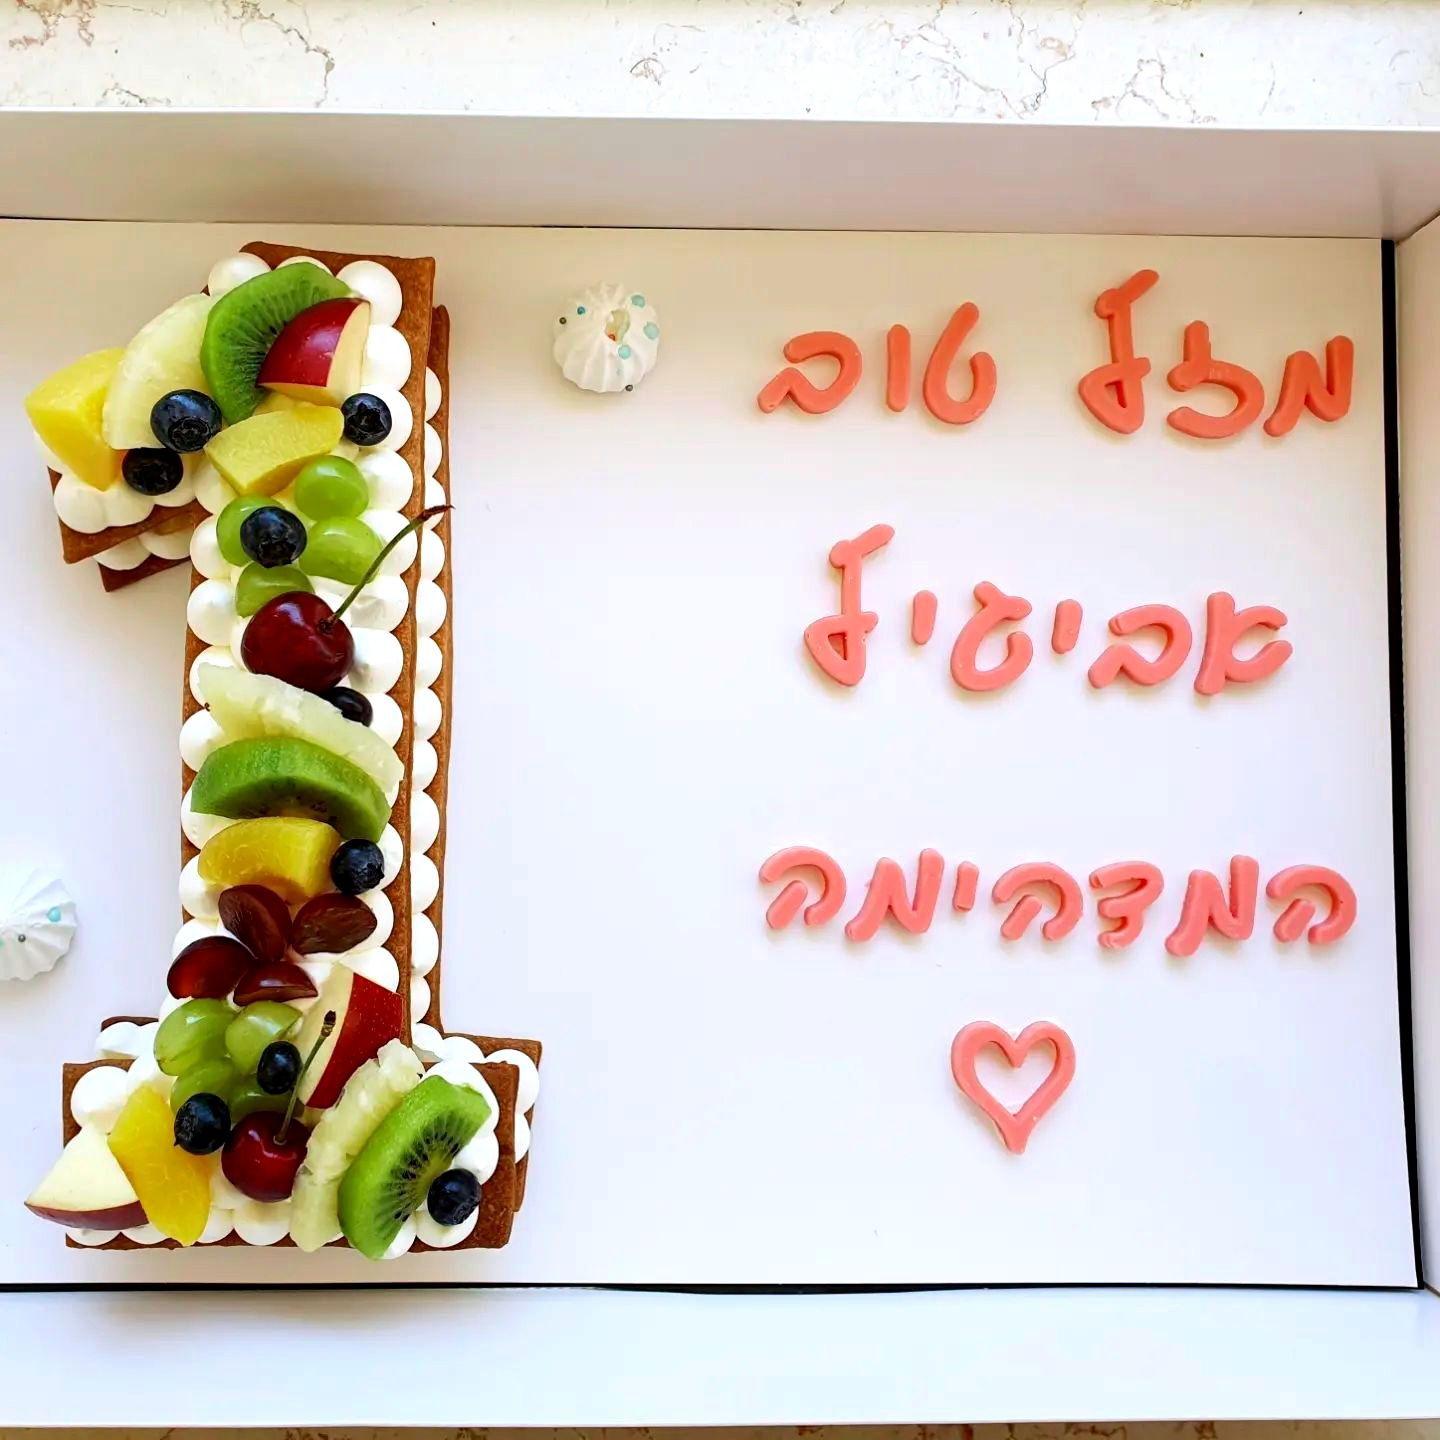 מזל טוב
אביגיל
המדהימה
1